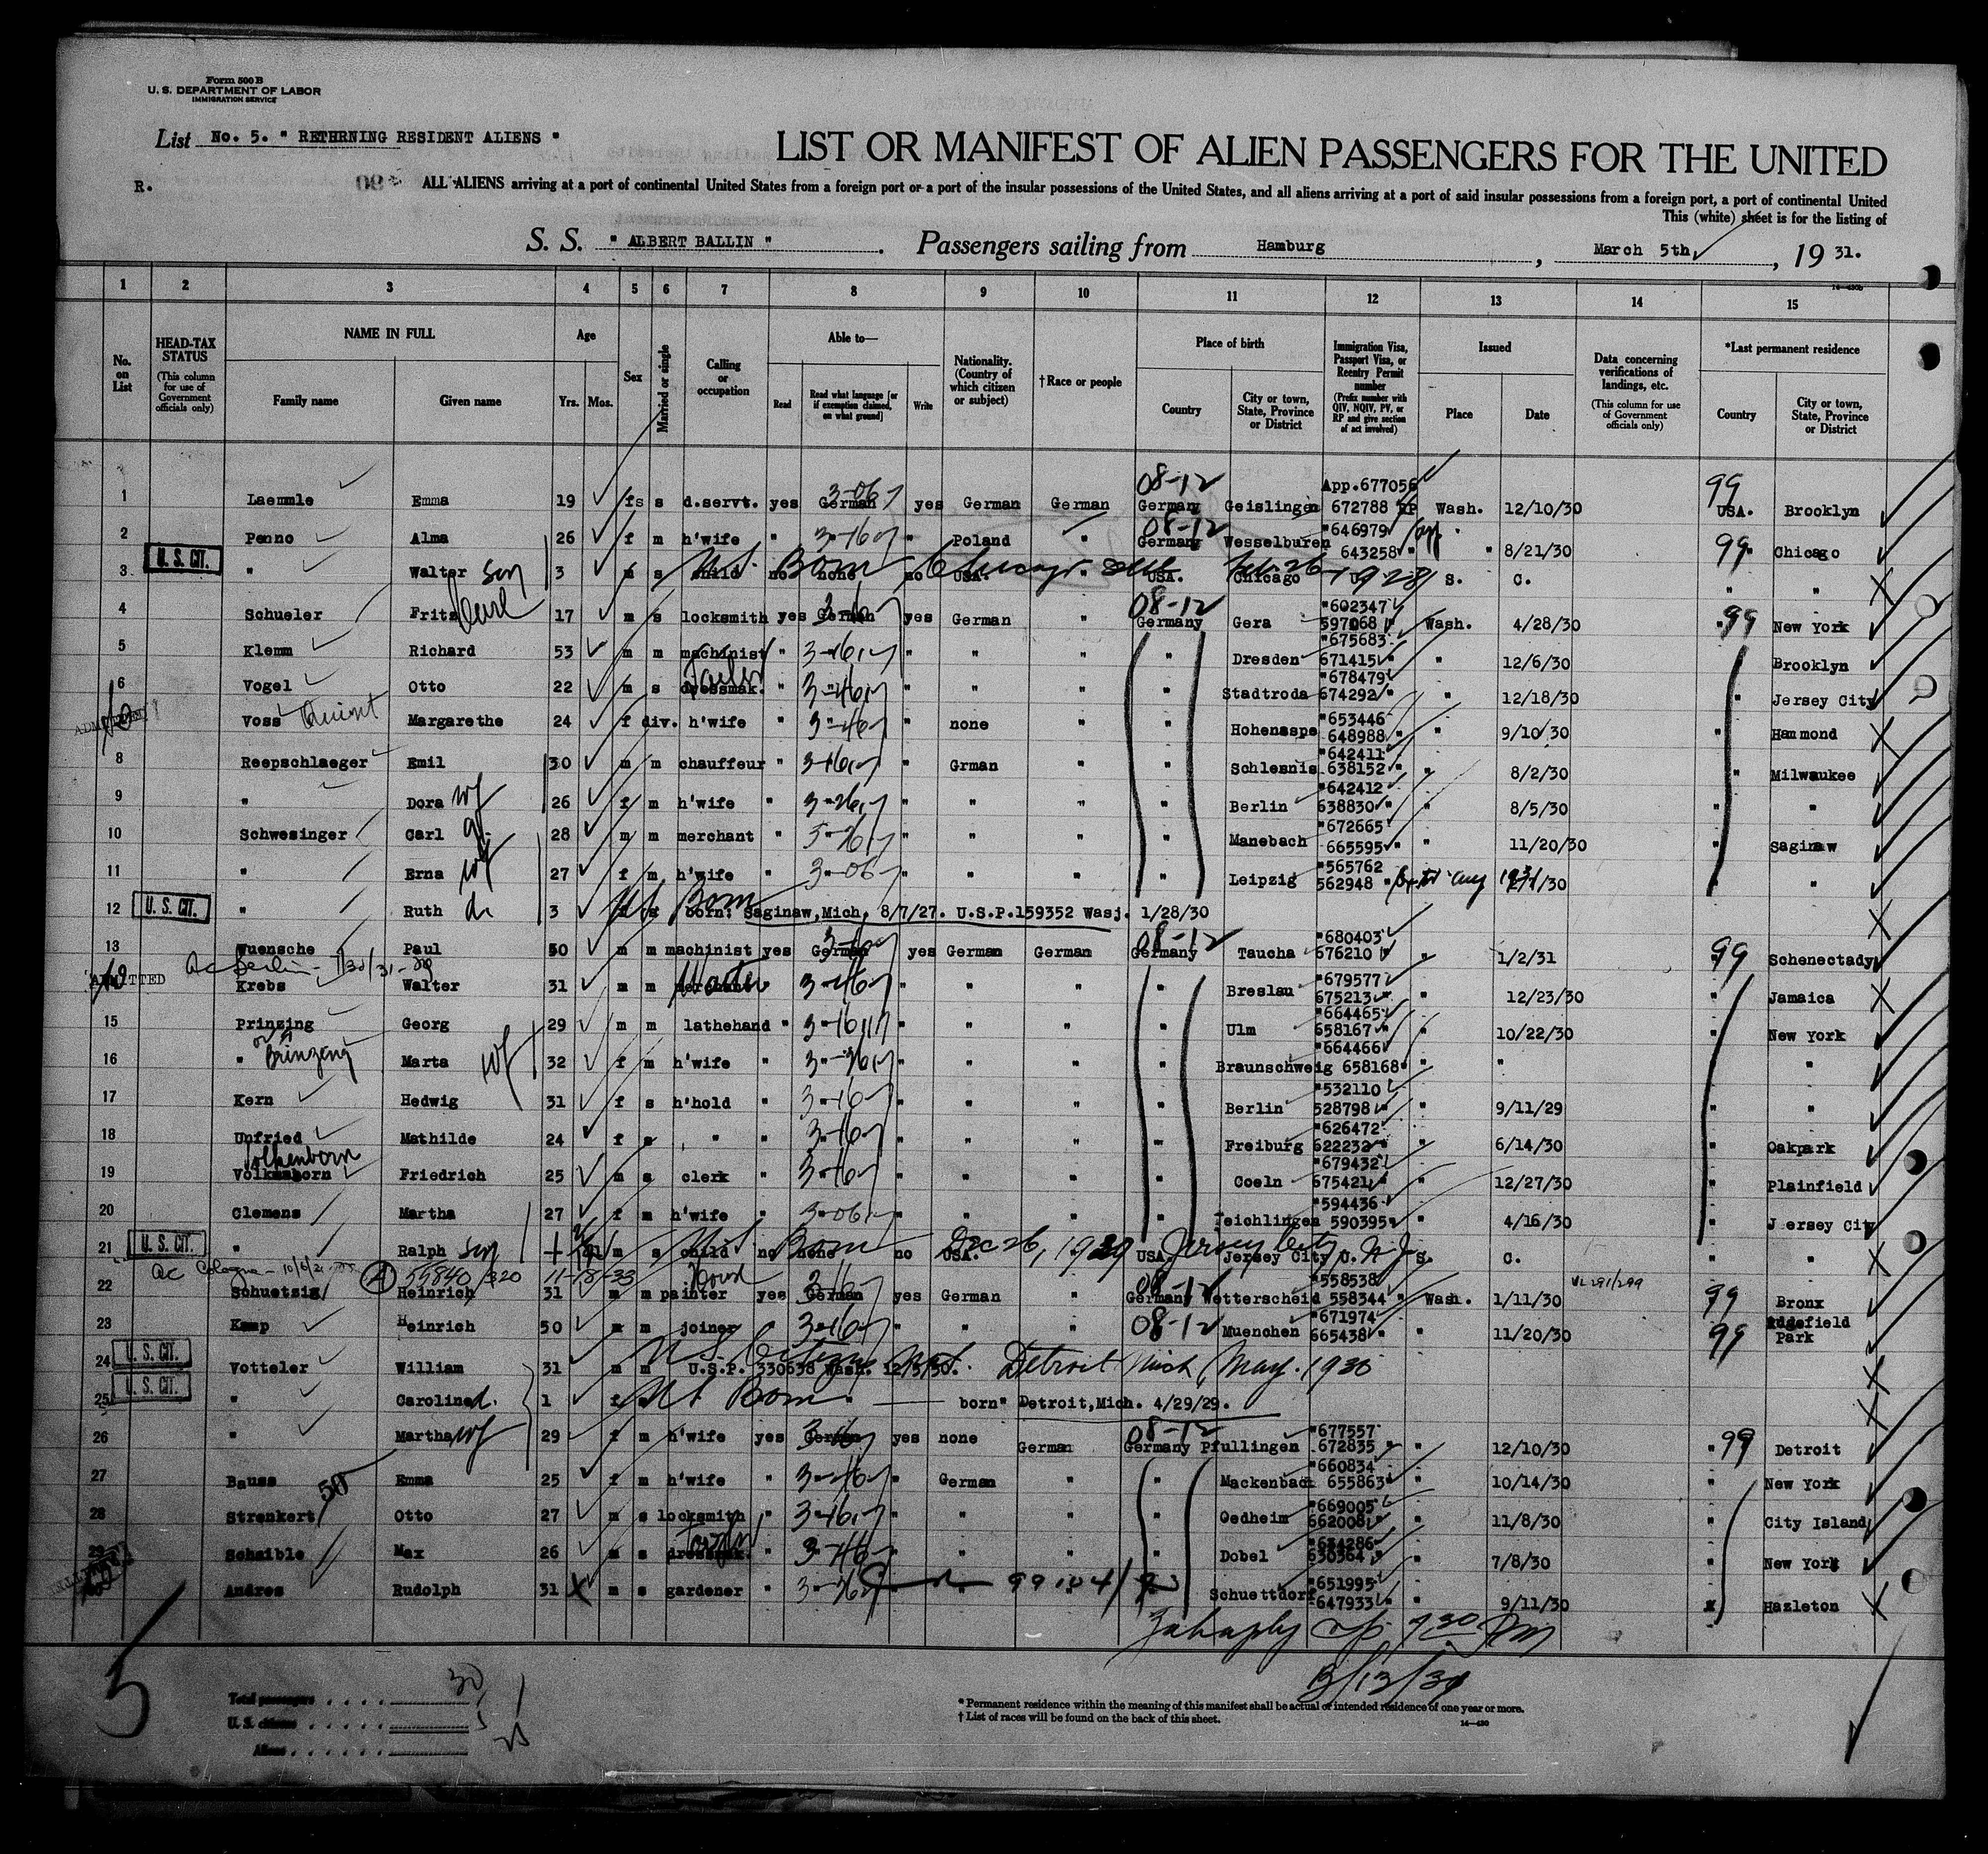 Form 500 B
U. S. DEPARTMENT OF LABOR
IMMIGRATION SERVICE
List No. 5. " RETHRNING RESIDENT ALIENS "
LIST OR MANIFEST OF ALIEN PASSENGERS FOR THE UNITED
R.
ALL ALIENS arriving at a port of continental United States from a foreign port or a port of the insular possessions of the United States, and all aliens arriving at a port of said insular possessions from a foreign port, a port of continental United
This (white) sheet is for the listing of
S. S. " ALBERT BALLIN " . Passengers sailing from Hamburg , March 5th, , 19 31.
1 2 3 4 5 6 7 8 9 10 11 12 13 14 15
No. on List
HEAD-TAX STATUS (This column for use of Government officials only)
NAME IN FULL
Family name Given name
Age Yrs. Mos.
Sex
Married or single
Calling or occupation
Able to—
Read Read what language [or if exemption claimed, on what ground] Write
Nationality. (Country of which citizen or subject)
† Race or people
Place of birth
Country City or town, State, Province or District
Immigration Visa, Passport Visa, or Reentry Permit number (Prefix number with QIV, NQIV, PV, or RP and give section of act involved)
Issued
Place Date
Data concerning verifications of landings, etc. (This column for use of Government officials only)
*Last permanent residence
Country City or town, State, Province or District
08-12 App.677056 99
1 Laemmle Emma 19 f s d.servt. yes German yes German German Germany Geislingen 672788 RP Wash. 12/10/30 USA. Brooklyn
2 Penno Alma 26 f m h'wife " " Poland " 08-12 Germany Wesselburen "646979 643258 " " 8/21/30 99 Chicago
U. S. CIT.
3 " Walter son 3 m s child no none no USA. " USA. Chicago U. S. C. " "
U.S. Born Chicago Feb. 26 1928
4 Schueler Fritz Carl 17 m s locksmith yes German yes German " 08-12 Germany Gera "602347 597068 " Wash. 4/28/30 99 New York
5 Klemm Richard 53 m m machinist " " " " " Dresden "675683 671415 " " 12/6/30 Brooklyn
6 Vogel Otto 22 m s dressmak. Tailor " " " " " Stadtroda "678479 674292 " " 12/18/30 " Jersey City
ADMITTED Voss Margarethe 24 f div. h'wife " " none " " Hohenaspe "653446 648988 " " 9/10/30 " Hammond
8 Reepschlaeger Emil 30 m m chauffeur " " Grman " " Schlesnis "642411 638152 " " 8/2/30 " Milwaukee
9 " Dora wf 26 f m h'wife " " " " " Berlin "642412 638830 " " 8/5/30 " "
10 Schwesinger Carl 28 m m merchant " " " " " Manebach "672665 665595 " " 11/20/30 " Saginaw
11 " Erna wf 27 f m h'wife " " " " " Leipzig "565762 562948 " " "
U. S. CIT.
12 " Ruth 3 U.S. Born born: Saginaw,Mich. 8/7/27. U.S.P.159352 Wasj. 1/28/30
13 Wuensche Paul 50 m m machinist yes German yes German German 08-12 Germany Taucha "680403 676210 " " 1/2/31 99 Schenectady
ADMITTED Krebs Walter 31 m m " " " " " Breslau "679577 675213 " " 12/23/30 " Jamaica
15 Prinzing Georg 29 m m lathehand " " " " " Ulm "664465 658167 " " 10/22/30 " New York
16 " or Brinzeng Marta wf 32 f m h'wife " " " " " Braunschweig "664466 658168 " " " " "
17 Kern Hedwig 31 f s h'hold " " " " " Berlin "532110 528798 " " 9/11/29 " "
18 Unfried Mathilde 24 f s " " " " " Freiburg "626472 622232 " " 6/14/30 " Oakpark
19 Volkenborn Friedrich 25 m s clerk " " " " " Coeln "679432 675421 " " 12/27/30 " Plainfield
20 Clemens Martha 27 f m h'wife " " " " " Teichlingen "594436 590395 " " 4/16/30 " Jersey City
U. S. CIT.
21 " Ralph son m s child no none no USA. USA. Jersey City U. S. C. " "
U.S. Born Dec 26, 1929 Jersey City N.J.
55840 320 11-18-33
22 Schuetzig Heinrich 31 m m painter yes German yes German " 08-12 Germany Wetterscheid "558538 558344 " Wash. 1/11/30 99 Bronx
23 Kamp Heinrich 50 m m joiner " " " " 08-12 Muenchen "671974 665438 " " 11/20/30 99 Ridgefield Park
U. S. CIT.
24 Votteler William 31 m m U.S.P. 330638 Wash. 12/3/30.
U.S. Citizen Nat. Detroit Mich, May. 1930
U. S. CIT.
25 " Caroline 1 f s U.S. Born born" Detroit,Mich. 4/29/29.
26 " Martha wf 29 f m h'wife yes German yes none German 08-12 Germany Pfullingen "677557 672835 " " 12/10/30 " 99 Detroit
27 Bauss Emma 25 f m h'wife " " German " " Mackenbach "660834 655863 " " 10/14/30 " New York
28 Strenkert Otto 27 m s locksmith " " " " " Oedheim "669005 662008 " " 11/8/30 " City Island
29 Schaible Max 26 m s dressmak. " " " " " Dobel "634286 630364 " " 7/8/30 " New York
Andres Rudolph 31 m s gardener " Schuettdorf "651995 647933 " " 9/11/30 Hazleton
7 30 PM
3/13/31
5
Total passengers . . . . 30
U. S. citizens . . . . . 5
Aliens . . . . . . 25
* Permanent residence within the meaning of this manifest shall be actual or intended residence of one year or more.
† List of races will be found on the back of this sheet.
14—430